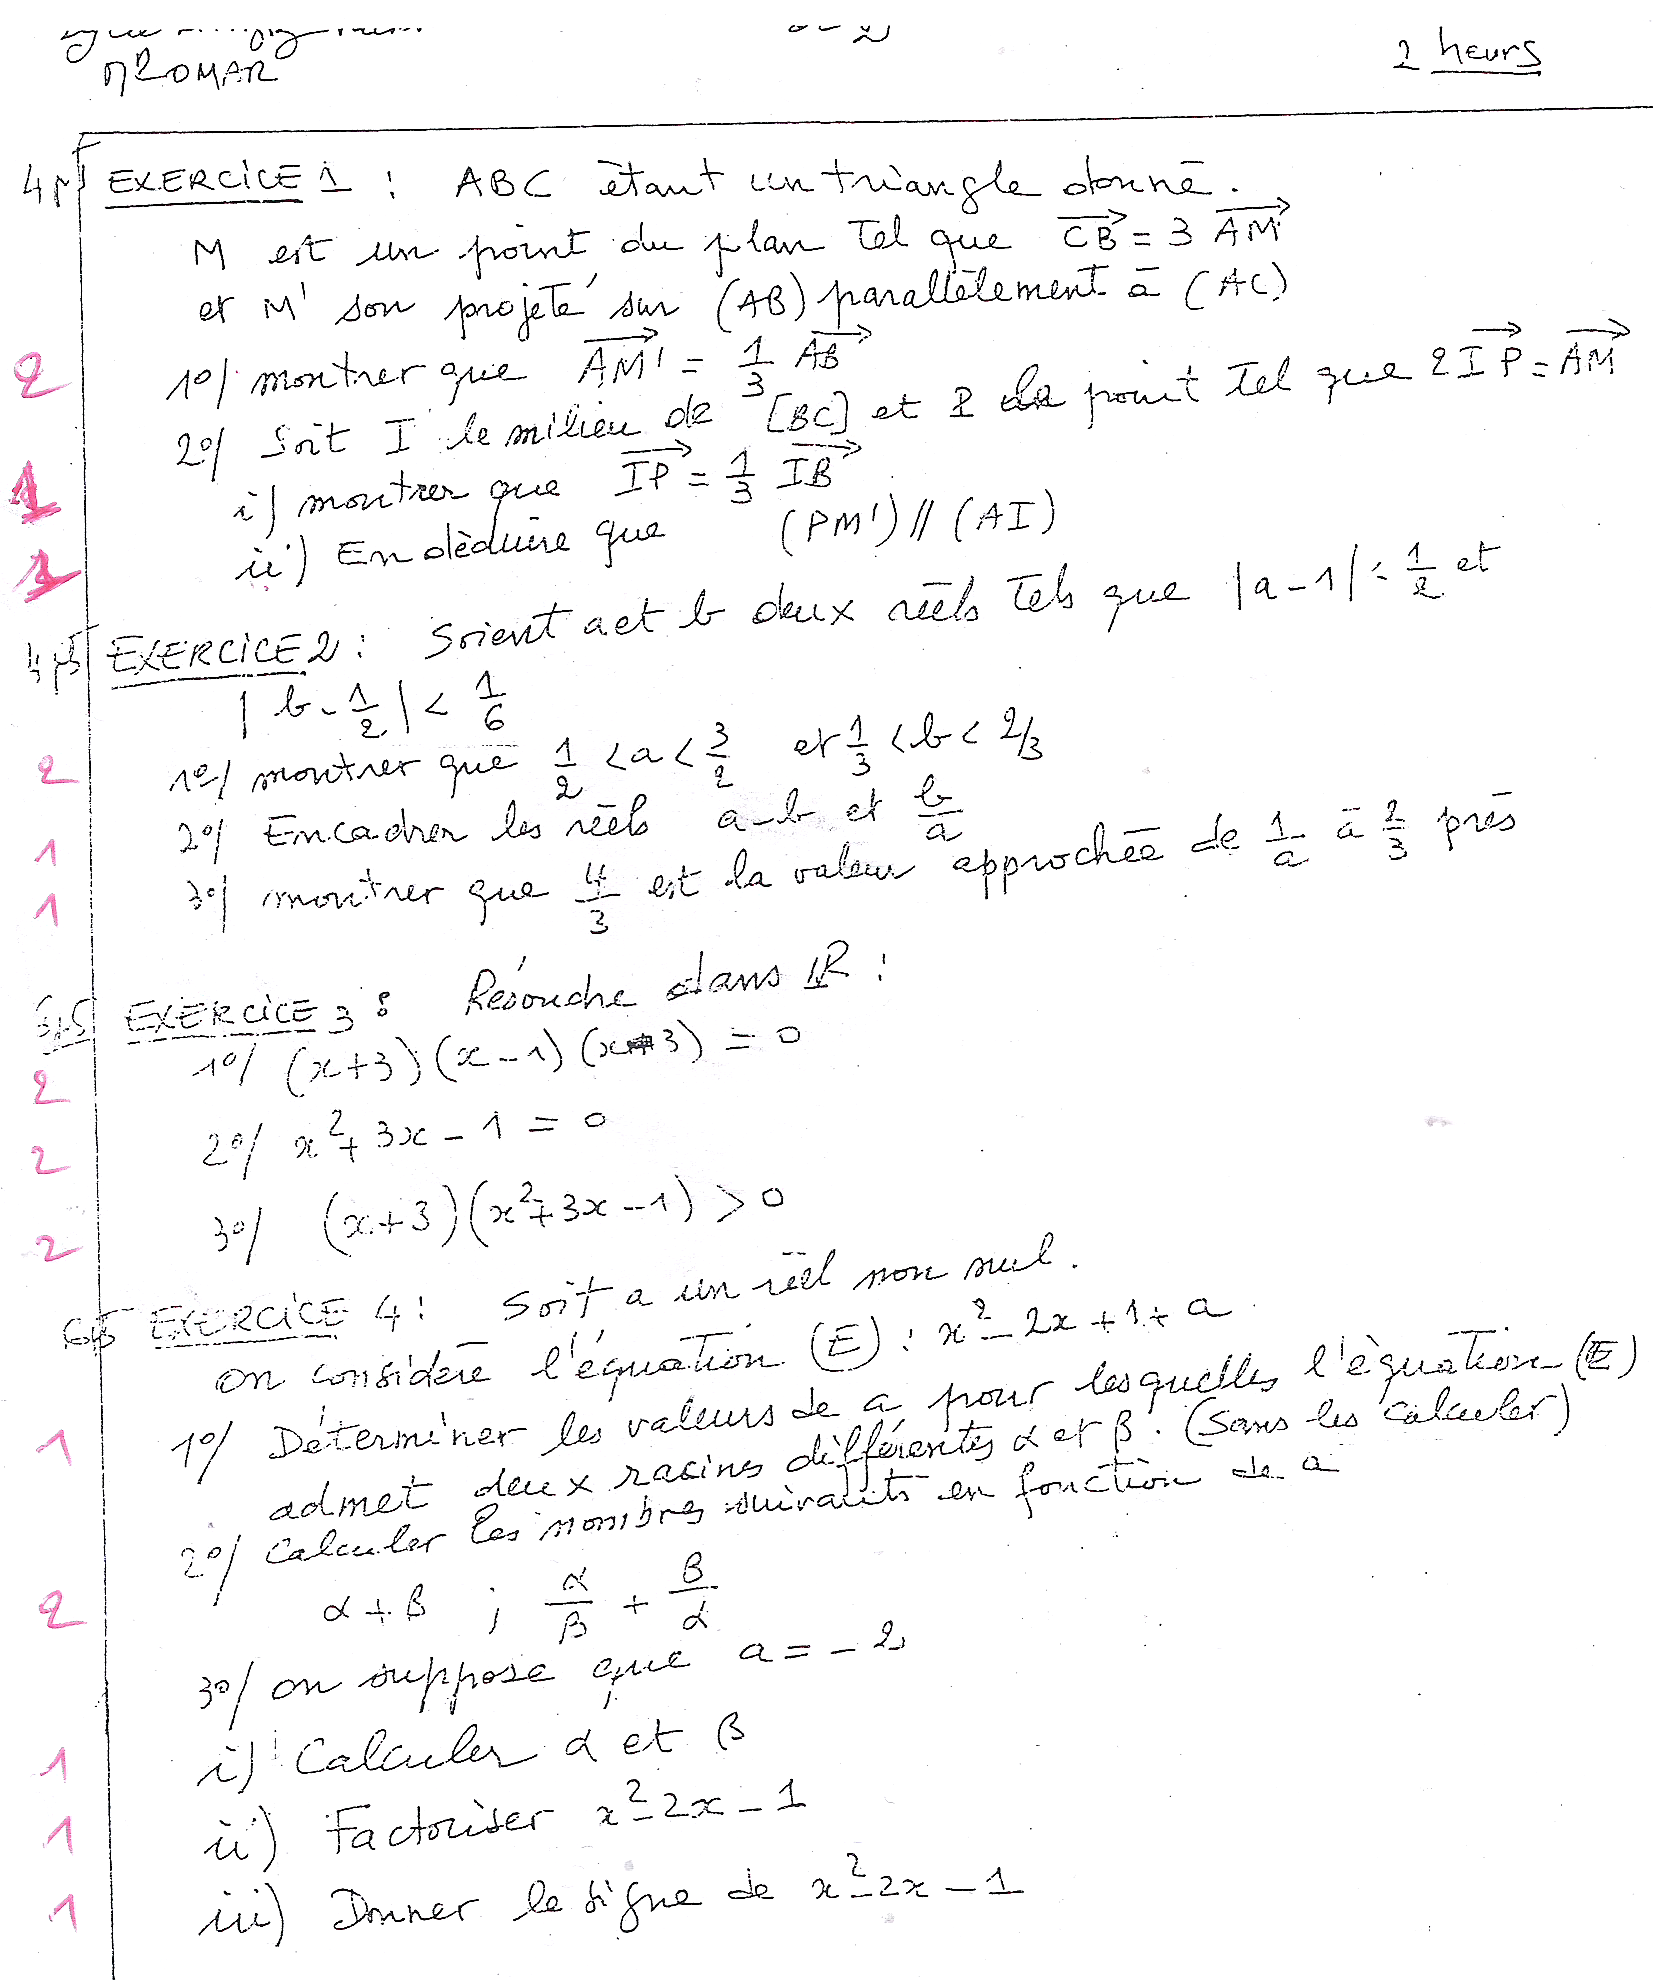 MR OMAR
2 heurs
4pt EXERCICE 1 : ABC étant un triangle donné.
M est un point du plan tel que CB = 3 AM
et M' son projeté sur (AB) parallèlement à (AC)
2 1°/ montrer que AM' = 1/3 AB
2°/ Soit I le milieu de [BC] et P le point tel que 2 IP = AM
1 i) montrer que IP = 1/3 IB
1 ii) En déduire que (PM') // (AI)
EXERCICE 2 : Soient a et b deux réels tels que |a - 1| < 1/2 et
|b - 1/2| < 1/6
2 1°/ montrer que 1/2 < a < 3/2 et 1/3 < b < 2/3
1 2°/ Encadrer les réels a - b et b/a
1 3°/ montrer que 4/3 est la valeur approchée de 1/a à 2/3 près
EXERCICE 3 : Résoudre dans IR :
2 1°/ (x+3)(x-1)(x+3) = 0
2 2°/ x² + 3x - 1 = 0
2 3°/ (x+3)(x²+3x-1) > 0
EXERCICE 4 : Soit a un réel non nul.
on considère l'équation (E) : x² - 2x + 1 + a
1 1°/ Déterminer les valeurs de a pour lesquelles l'équation (E)
admet deux racines différentes α et β. (Sans les calculer)
2°/ Calculer les nombres suivants en fonction de a
2 α + β ; α/β + β/α
3°/ on suppose que a = -2
1 i) Calculer α et β
1 ii) Factoriser x² - 2x - 1
1 iii) Donner le signe de x² - 2x - 1